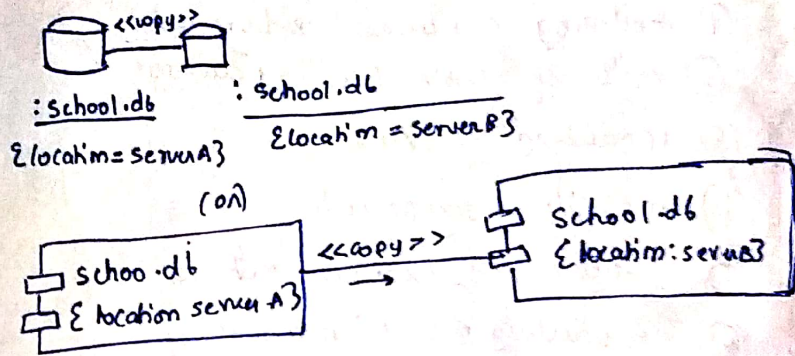 <<copy>>
:school.db
:school.db
{location = serverA}
{location = serverB}
(or)
schoo.db
{location server A}
<<copy>>
school.db
{location: serverB}